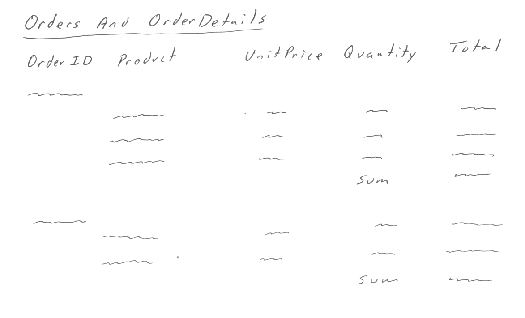 Orders And OrderDetails
OrderID Product UnitPrice Quantity Total
Sum
Sum